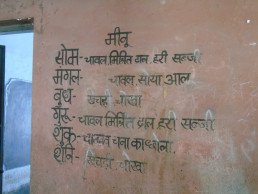 मीनू
सोम- चावल मिश्रित दाल हरी सब्जी
मंगल- चावल, सोया आलू
बुध- खिचड़ी चोखा
गुरू- चावल मिश्रित दाल हरी सब्जी
शुक्र- चावल चना का छोला.
शनि- खिचड़ी चोखा